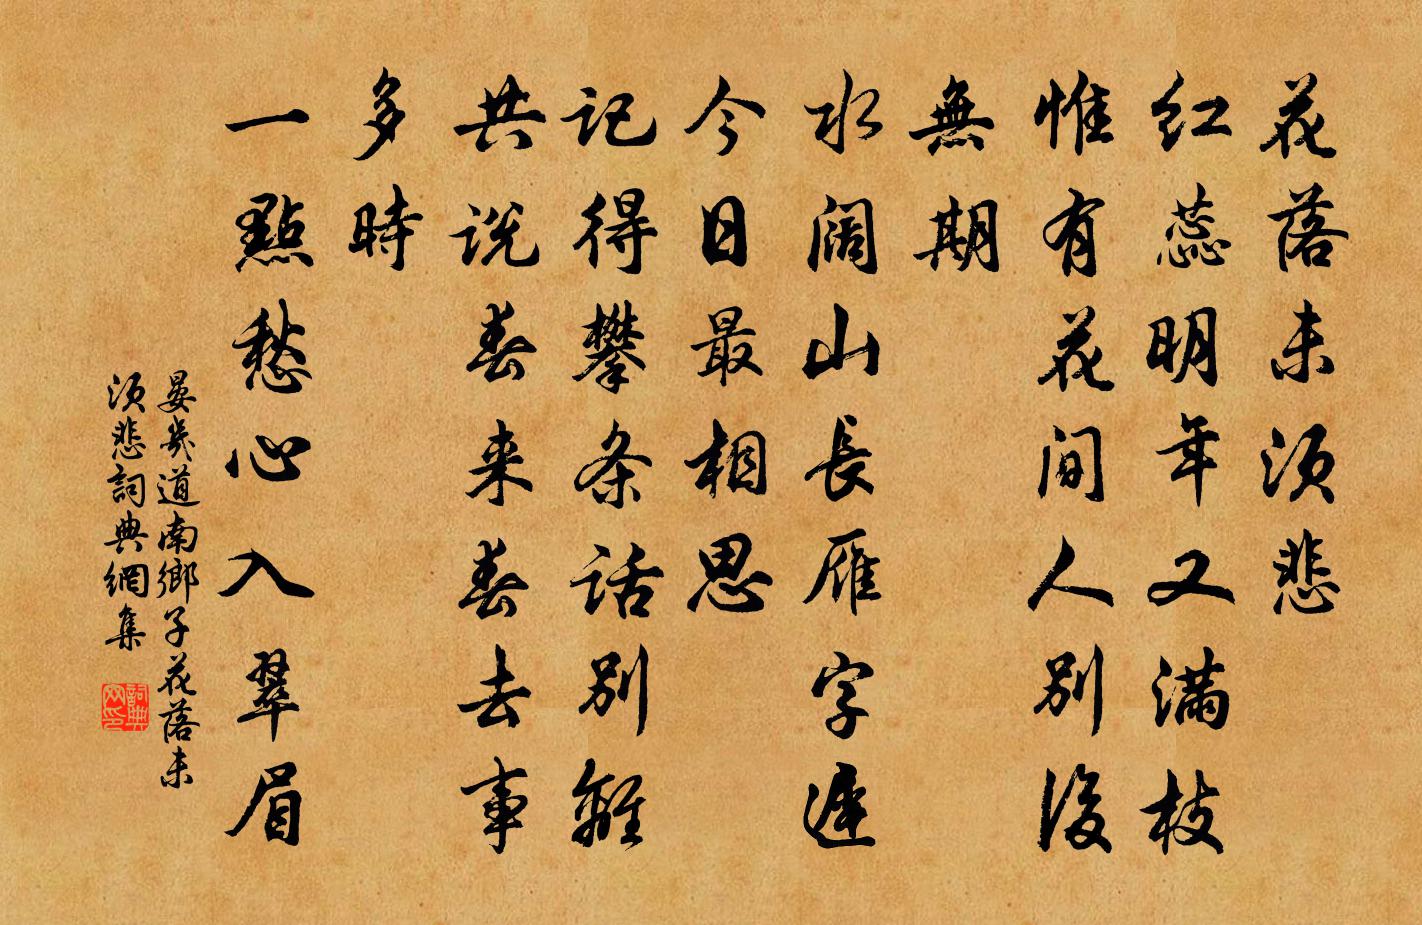 花落未须悲
红蕊明年又满枝
惟有花间人别後
無期
水阔山長雁字遲
今日最相思
记得攀条话别離
共说春来春去事
多時
一點愁心入翠眉
晏幾道南鄉子花落未
须悲詞典網集
詞典网印